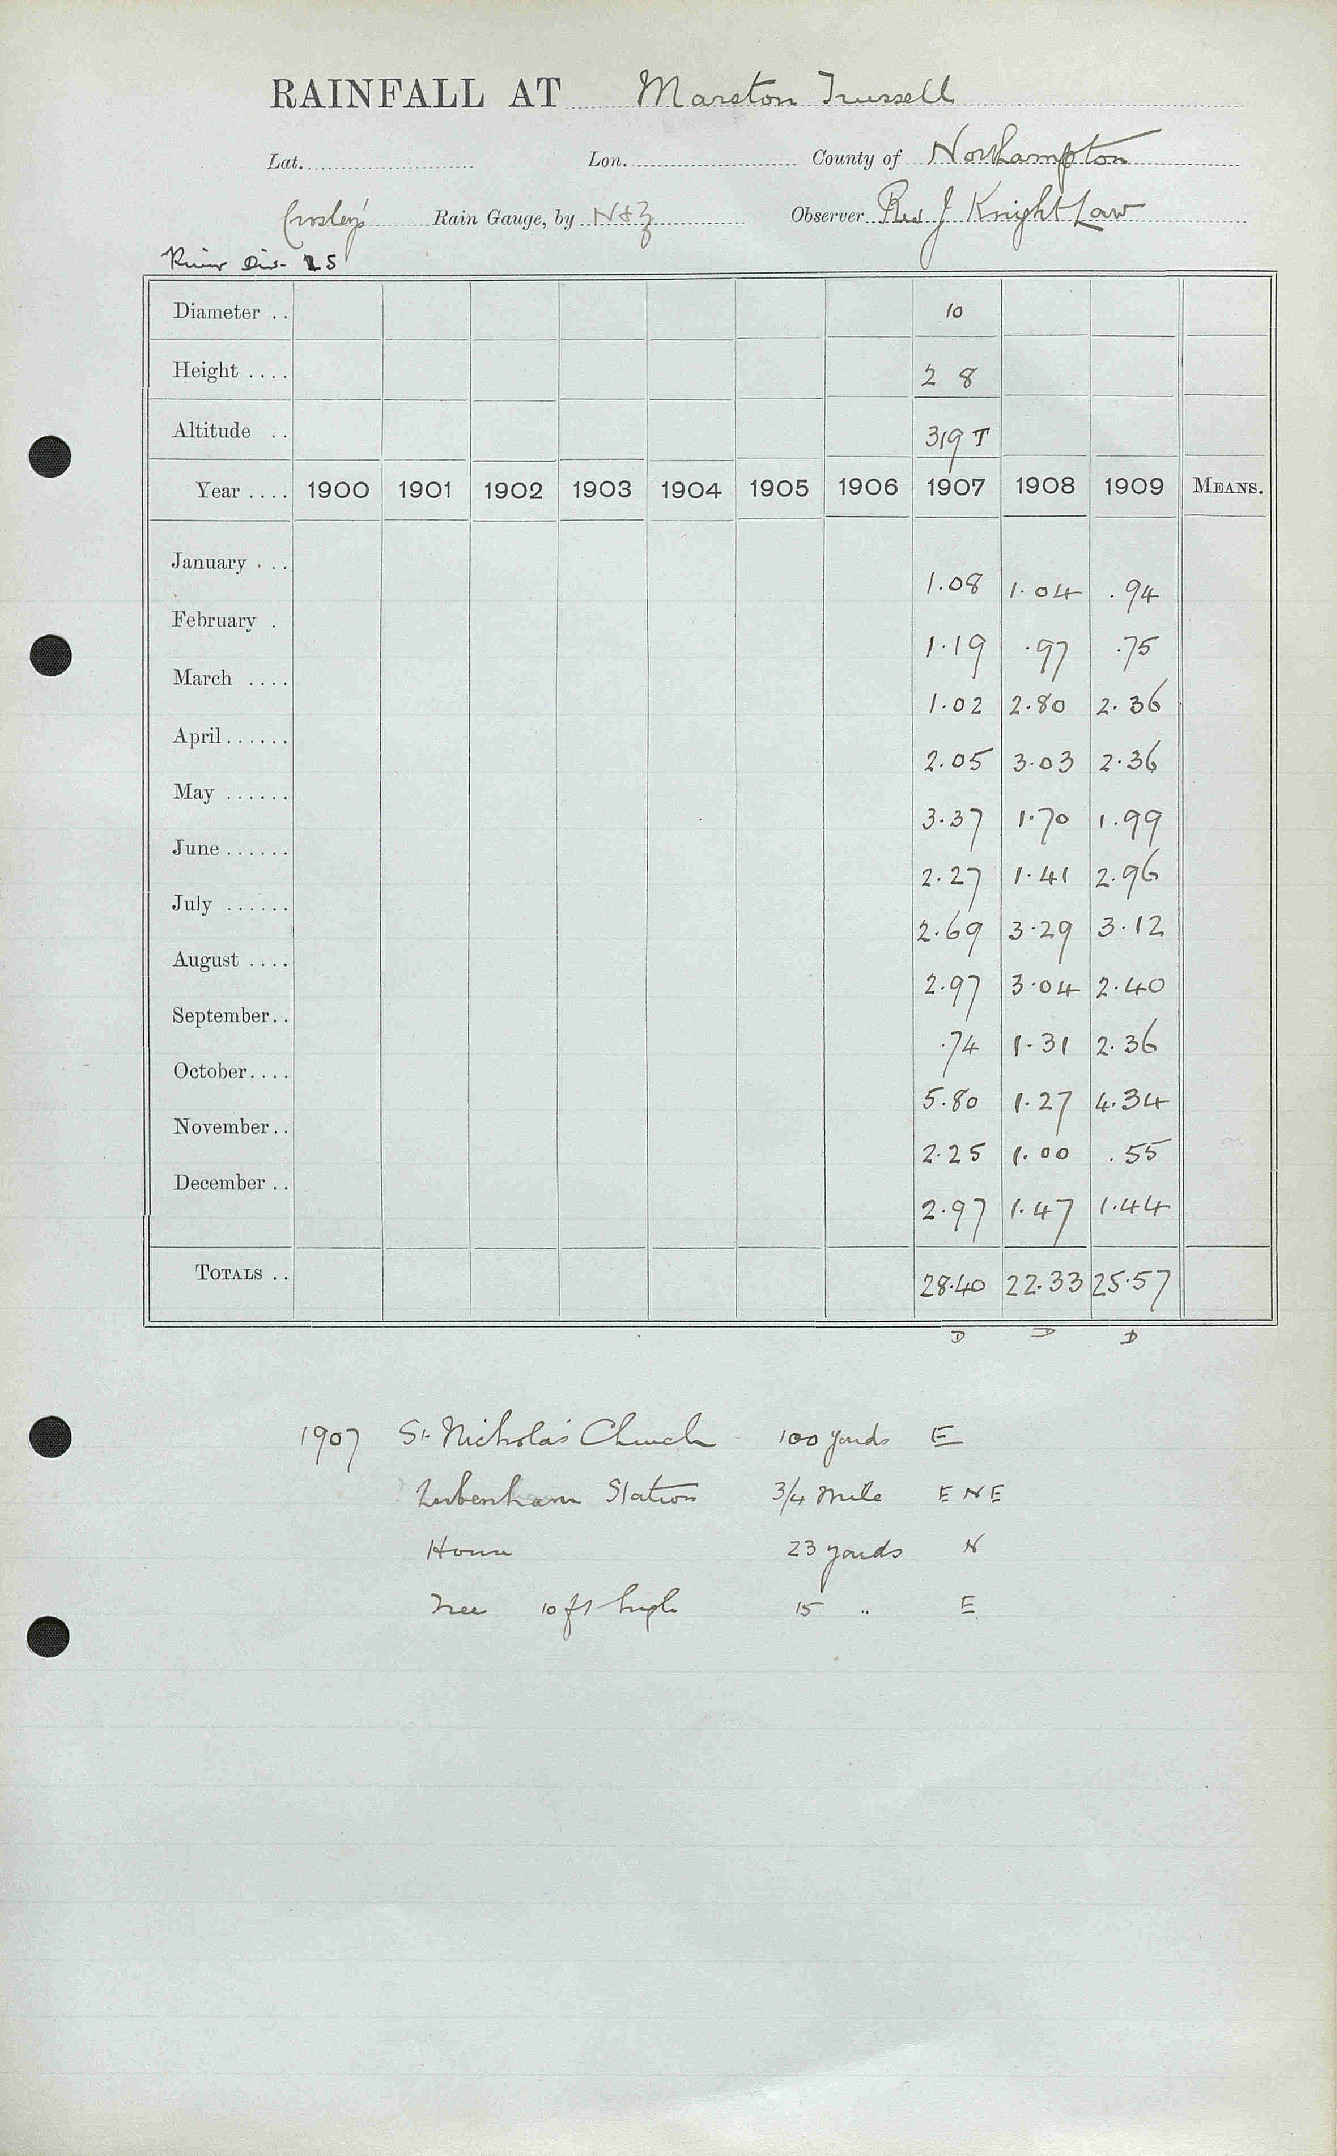 RAINFALL AT Marston Trussell
Lat. Lon. County of Northampton
Crosley's Rain Gauge, by N & Z Observer Rev J Knight Law
River Div. 25
Diameter . . 10
Height . . . . 2 8
Altitude . . 319 T
Year . . . . 1900 1901 1902 1903 1904 1905 1906 1907 1908 1909 MEANS.
January . . . 1.08 1.04 .94
February . 1.19 .97 .75
March . . . . 1.02 2.80 2.36
April . . . . . . 2.05 3.03 2.36
May . . . . . . 3.37 1.70 1.99
June . . . . . . 2.27 1.41 2.96
July . . . . . . 2.69 3.29 3.12
August . . . . 2.97 3.04 2.40
September . . .74 1.31 2.36
October . . . . 5.80 1.27 4.34
November . . 2.25 1.00 .55
December . . 2.97 1.47 1.44
TOTALS . . 28.40 22.33 25.57
D D D
1907 St. Nicholas Church 100 yards E
Lubenham Station 3/4 mile E N E
House 23 yards N
Tree 10 ft high 15 " E